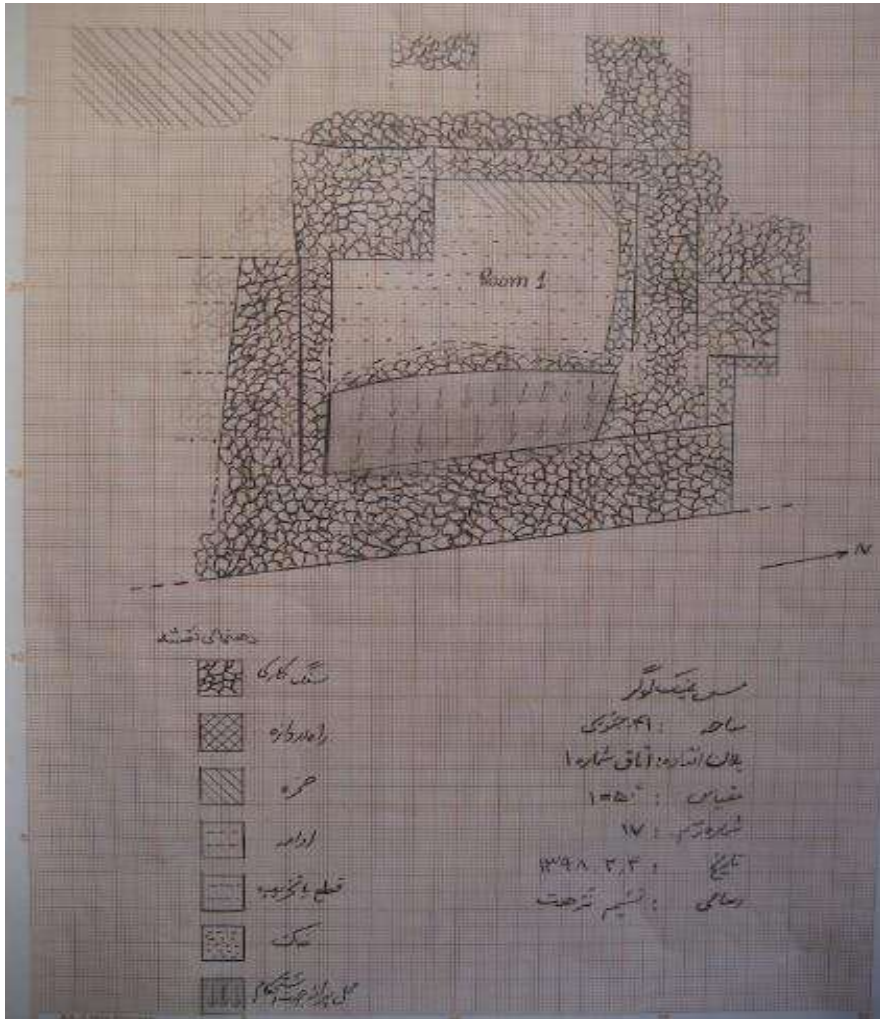 Room 1
N
راهنمای نقشه
سنگ کاری
راه دروازه
حفره
ادامه
قطع یا تخریب
خاک
محل
مس عینک لوگر
ساحه : ۴۱ جنوبی
پلان اتاق شماره ۱
مقیاس : ۱=۵۰
شماره رسم : ۱۷
تاریخ : ۱۳۹۸.۲.۳
رسامی : نسیم نزهت